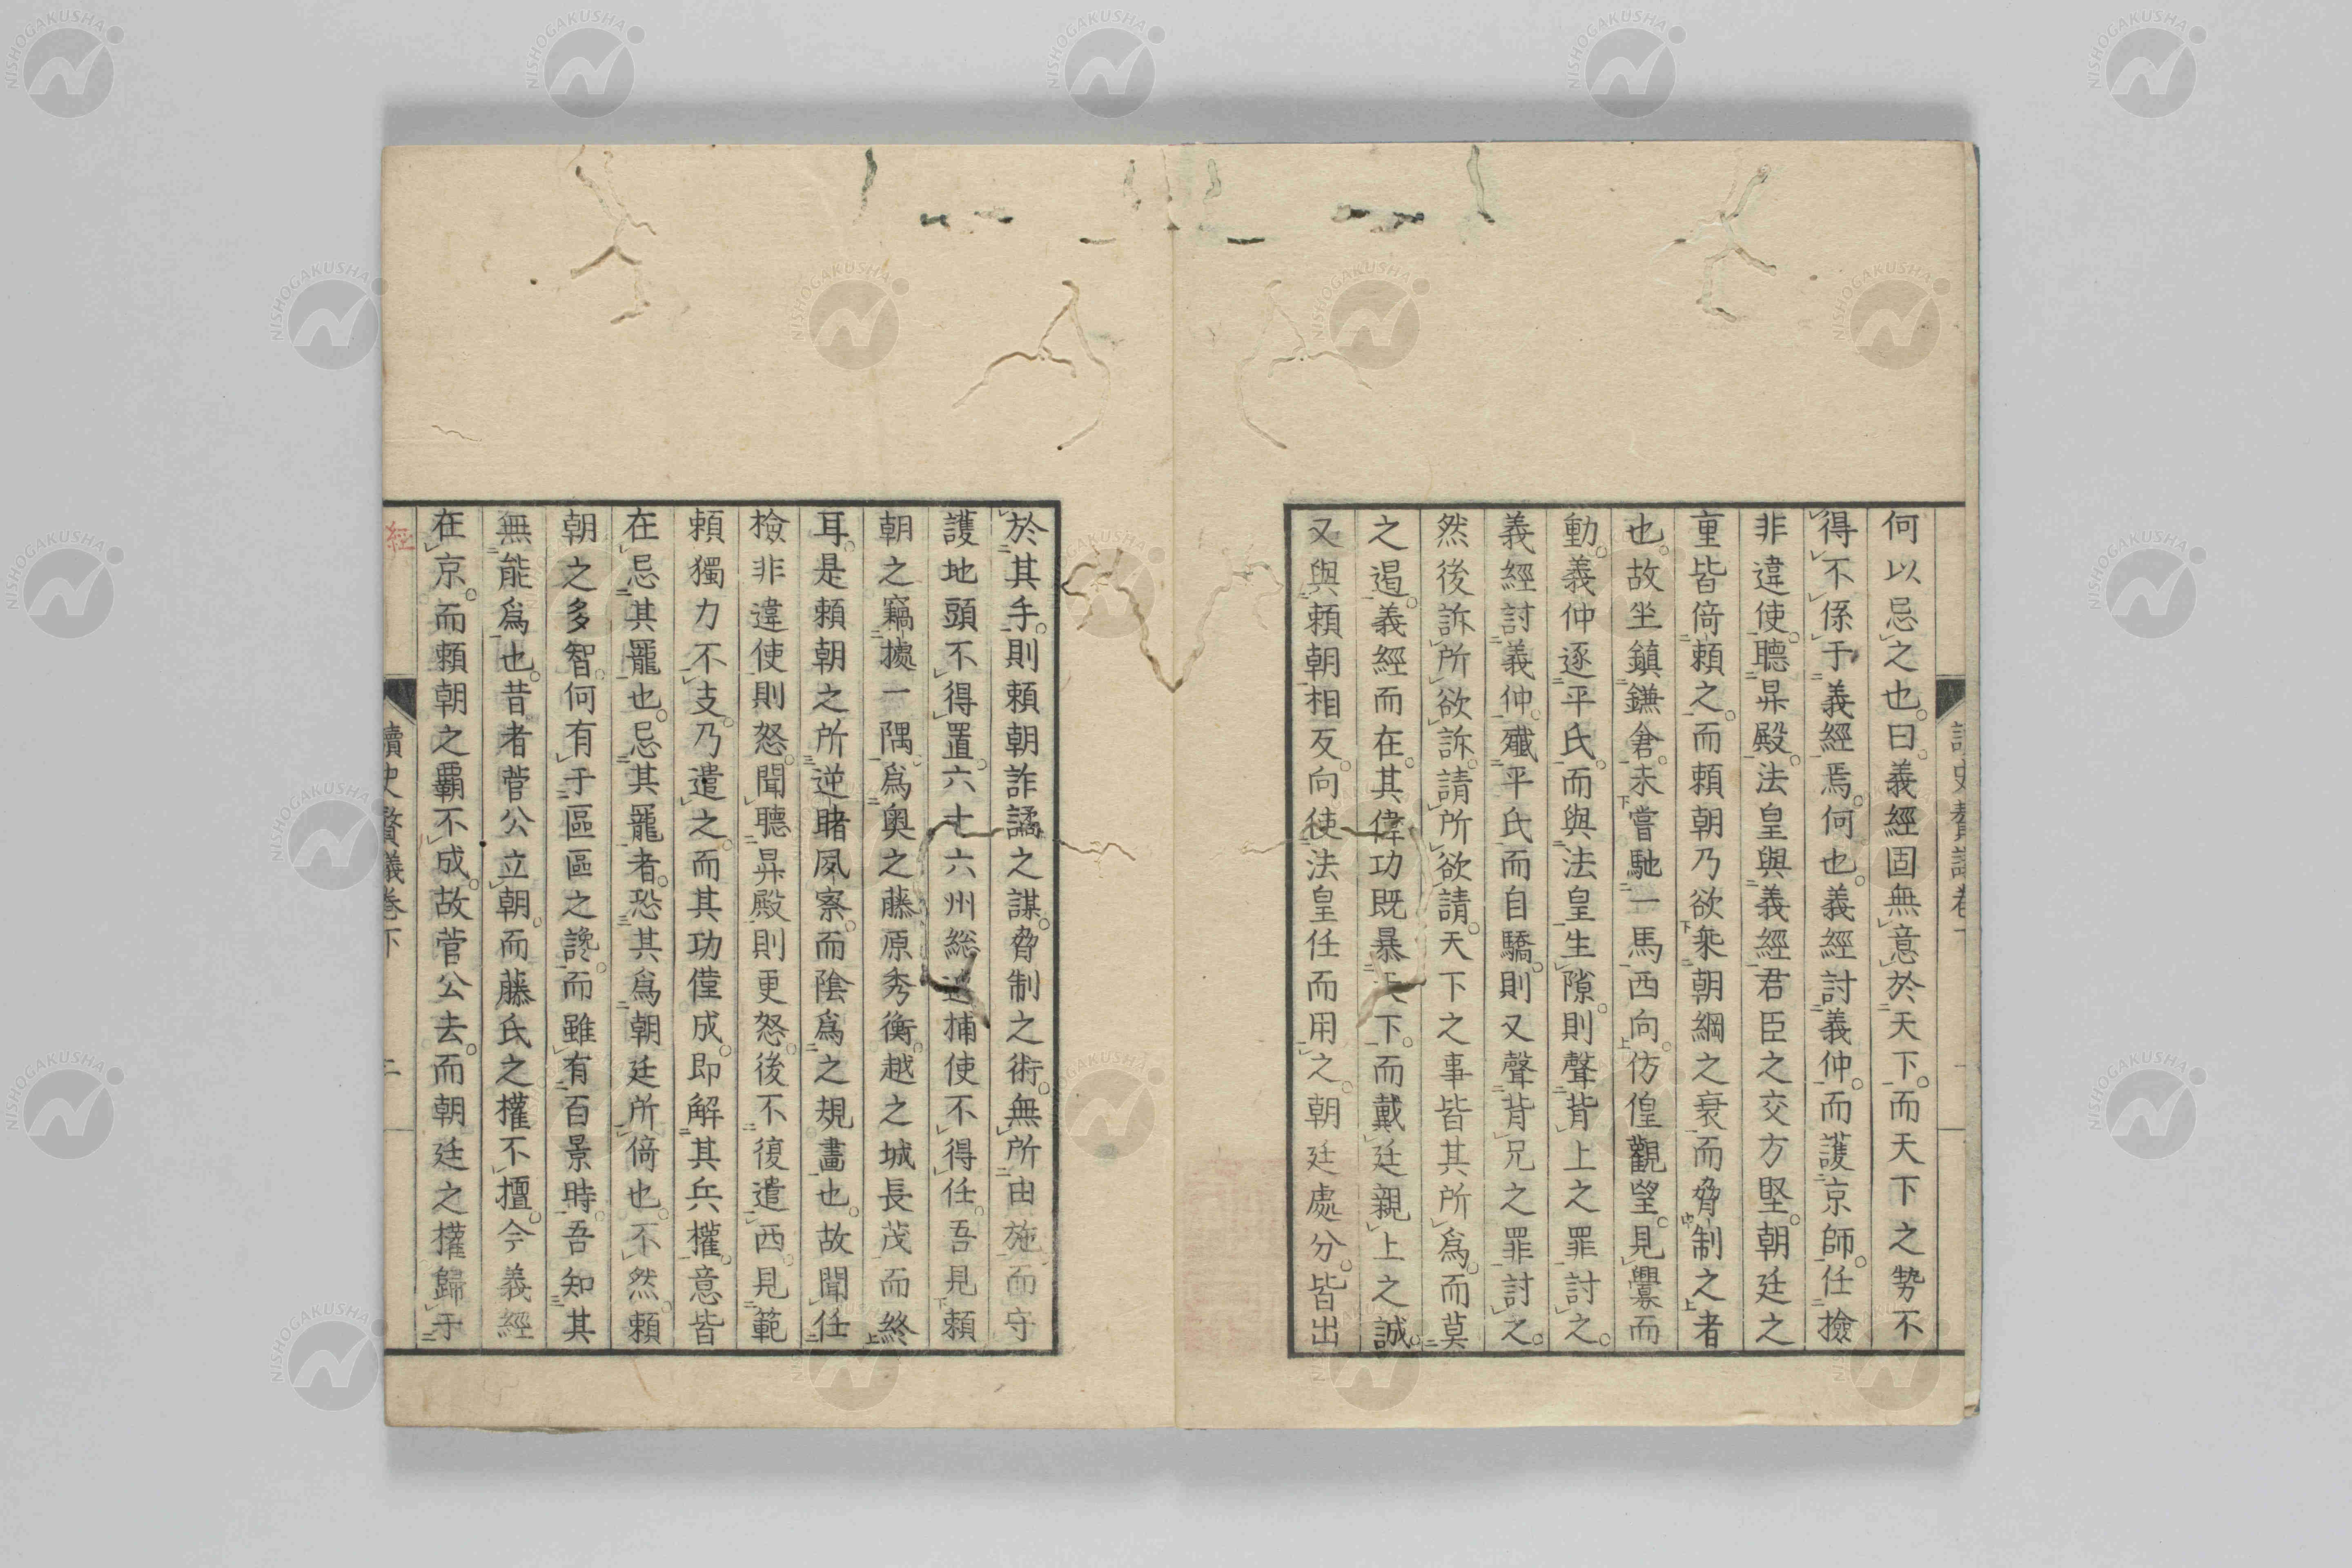 何以忌之也。曰。義經固無意於天下。而天下之勢不
得不係于義經焉。何也。義經討義仲。而護京師。任撿
非違使。聽昇殿。法皇與義經君臣之交方堅。朝廷之
重皆倚賴之。而賴朝乃欲乘朝綱之衰而脅制之者
也。故坐鎮鎌倉。未嘗馳一馬西向。仿偟觀望。見釁而
動。義仲逐平氏。而與法皇生隙。則聲背上之罪討之。
義經討義仲。殲平氏而自驕。則又聲背兄之罪討之。
然後訴所欲訴。請所欲請。天下之事皆其所爲。而莫
之遏。義經而在。其偉功既暴天下。而戴廷親上之誠。
又與賴朝相反。向使法皇任而用之。朝廷處分。皆出
於其手。則賴朝詐譎之謀。脅制之術。無所由施。而守
護地頭不得置。六十六州総追捕使不得任。吾見賴
朝之竊據一隅。爲奥之藤原秀衡。越之城長茂而終
耳。是賴朝之所逆睹夙察。而陰爲之規畫也。故聞任
撿非違使則怒。聞聽昇殿則更怒。後不復遣西。見範
賴獨力不支。乃遣之。而其功僅成。即解其兵權。意皆
在忌其寵也。忌其寵者。恐其爲朝廷所倚也。不然。賴
朝之多智。何有于區區之讒。而雖有百景時。吾知其
無能爲也。昔者菅公立朝。而藤氏之權不擅。今義經
在京。而賴朝之覇不成。故菅公去。而朝廷之權歸于
經
讀史贅議卷下
二
NISHOGAKUSHA